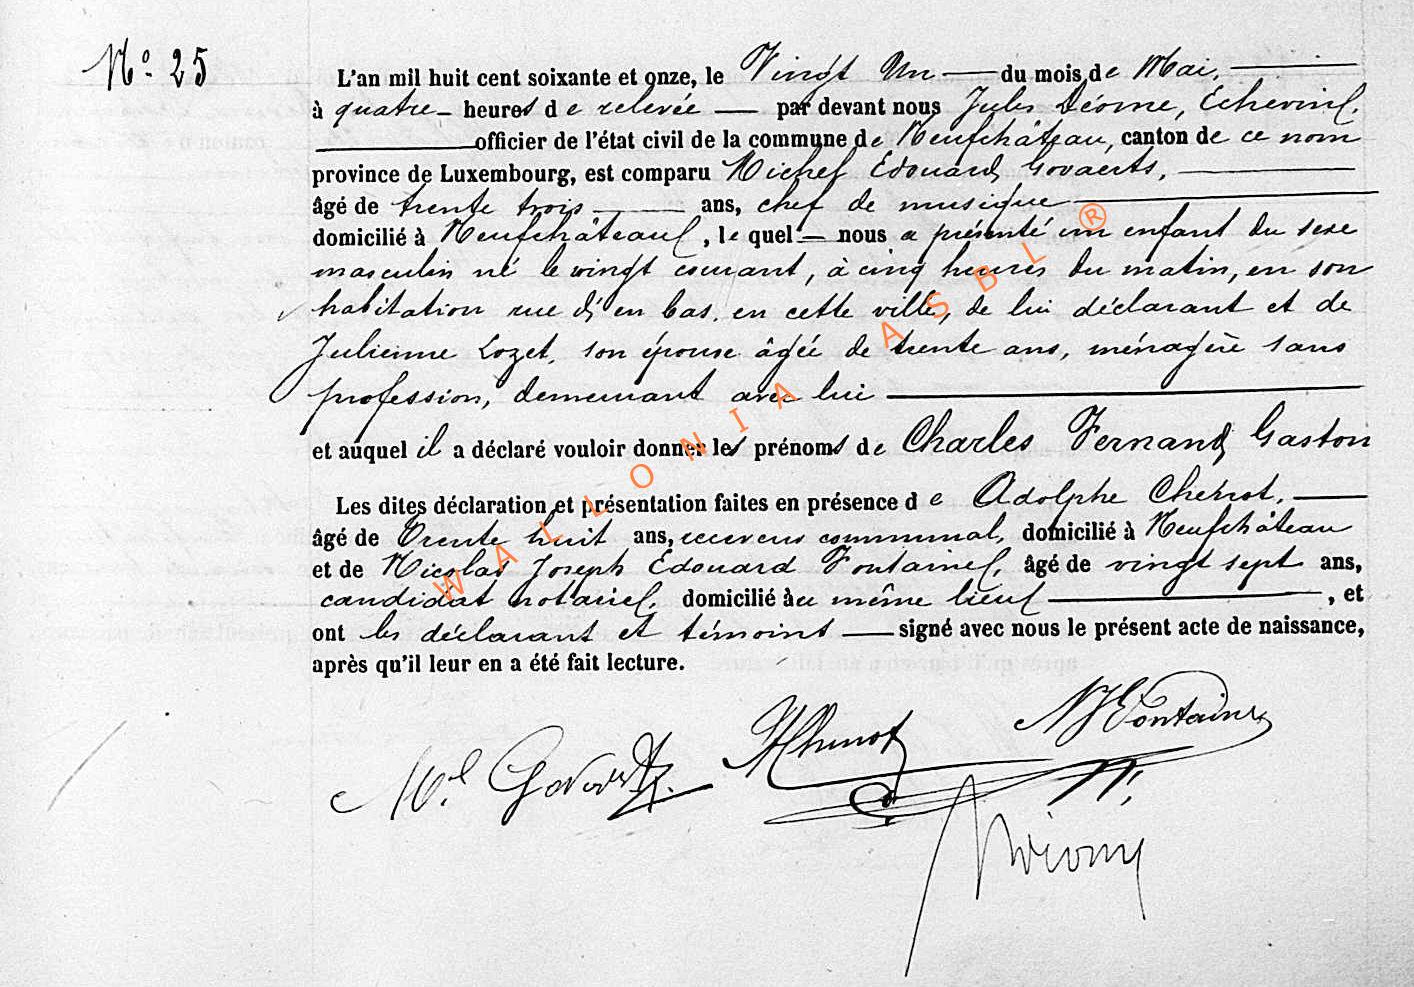 N° 25
L'an mil huit cent soixante et onze, le Vingt Un du mois de Mai,
à quatre heures de relevée par devant nous Jules Déome, Echevin,
officier de l'état civil de la commune de Neufchâteau, canton de ce nom
province de Luxembourg, est comparu Michel Edouard Govaerts,
âgé de trente trois ans, chef de musique
domicilié à Neufchâteau, le quel nous a présenté un enfant du sexe
masculin né le vingt courant, à cinq heures du matin, en son
habitation rue d'en bas, en cette ville, de lui déclarant et de
Julienne Lozet, son épouse âgée de trente ans, ménagère sans
profession, demeurant avec lui
et auquel il a déclaré vouloir donner les prénoms de Charles Fernand Gaston
Les dites déclaration et présentation faites en présence de Adolphe Chénot,
âgé de Trente huit ans, receveur communal, domicilié à Neufchâteau
et de Nicolas Joseph Edouard Fontaine, âgé de vingt sept ans,
candidat notaire, domicilié au même lieu, et
ont les déclarant et témoins signé avec nous le présent acte de naissance,
après qu'il leur en a été fait lecture.
WALLONIA ASBL ®
M.el Govaerts
AChenot
NJEFontaine